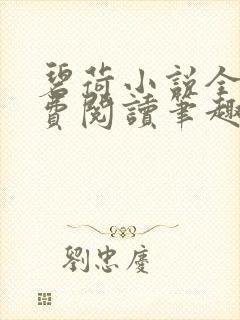 碧荷小說全
費閱讀筆趣
劉忠慶